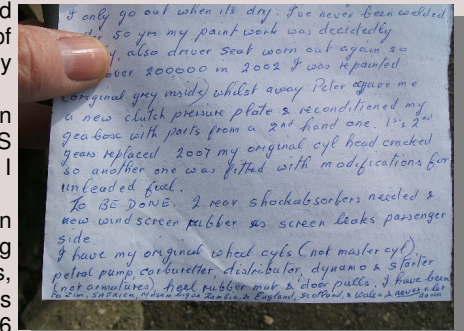 d
of
y
n
S
I
n
g
s,
s
6
I only go out when its dry. I've never been welded
50 yrs my paint work was decidedly
also driver seat worn out again so
over 200000 in 2002 I was repainted
(original grey inside) whilst away Peter gave me
a new clutch pressure plate & reconditioned my
geabose with parts from a 2nd hand one. 1st & 2nd
gears replaced 2007 my original cyl head cracked
so another one was fitted with modifications for
unleaded fuel.
TO BE DONE. 2 rear shockabsorbers needed &
new wind screen rubber as screen leaks passenger
side.
I have my original wheel cyls (not master cyl),
petrol pump, carburetter, distributor, dynamo & starter
(not armatures), heel rubber mat & door pulls. I have been
to Zim, SAFRICA, Mozambique Zambia, & England, Scotland, & Wales & never let down